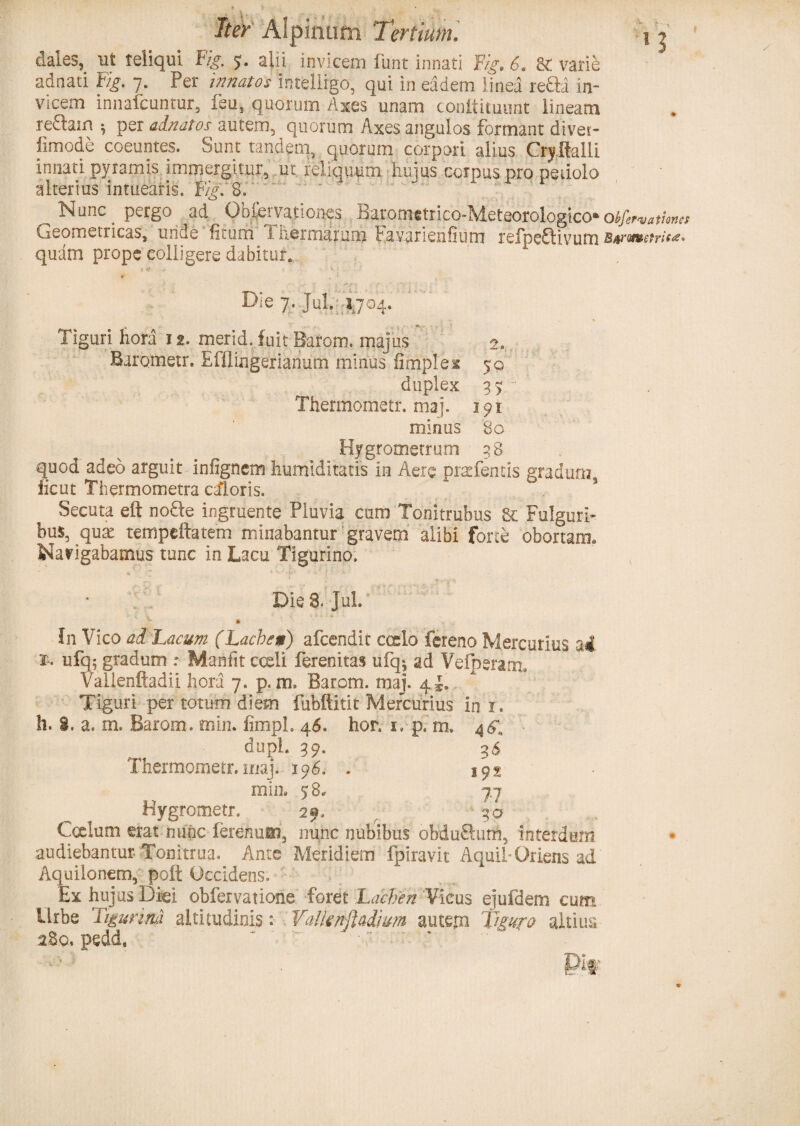 Iter Alpinum Tertium. 13
dales, ut reliqui Fig. 5. alii invicem ſunt innati Fig. 6. & varie
adnati Fig. 7. Per innatos intelligo, qui in eâdem lineâ rectâ in-
vicem innaſcuntur, ſeu, quorum Axes unam conſtituunt lineam
rectam ; per adnatos autem, quorum Axes angulos formant diver-
ſimodè coeuntes. Sunt tandem, quorum corpori alius Cryſtalli
innati pyramis immergitur, ut reliquum hujus corpus pro pediolo
alterius intuearis. Fig. 8.
Nunc pergo ad Obſervationes Barometrico-Meteorologico- Obſervationes
Geometricas, unde ſitum Thermarum Favarienſium reſpectivum Barometricæ.
quâm propè colligere dabitur.
Die 7. Jul. 1704.
Tiguri horâ 12. merid. fuit Barom. majus 2.
Barometr. Eſſlingerianum minus ſimplex 50
duplex 35
Thermometr. maj. 191
minus 80
Hygrometrum 38
quod adeò arguit inſignem humiditatis in Aere præſentis gradum,
ſicut Thermometra caloris.
Secuta eſt nocte ingruente Pluvia cum Tonitrubus & Fulguri-
bus, quæ tempeſtatem minabantur gravem alibi fortè obortam.
Navigabamus tunc in Lacu Tigurino.
Die 8. Jul.
In Vico ad Lacum (Lachen) aſcendit cœlo ſereno Mercurius ad
1. uſq; gradum : Manſit cœli ſerenitas uſq; ad Veſperam.
Vallenſtadii horâ 7. p. m. Barom. maj. 4½.
Tiguri per totum diem ſubſtitit Mercurius in 1.
h. 8. a. m. Barom. min. ſimpl. 46. hor. 1. p. m. 46.
dupl. 39. 36
Thermometr. maj. 196. . 192
min. 58. 77
Hygrometr. 29. 30
Cœlum erat nunc ſerenum, nunc nubibus obductum, interdum
audiebantur Tonitrua. Ante Meridiem ſpiravit Aquil-Oriens ad
Aquilonem, poſt Occidens.
Ex hujus Diei obſervatione foret Lachen Vicus ejuſdem cum
Urbe Tigurinâ altitudinis : Vallenſtadium autem Tiguro altius
280. pedd.
Die